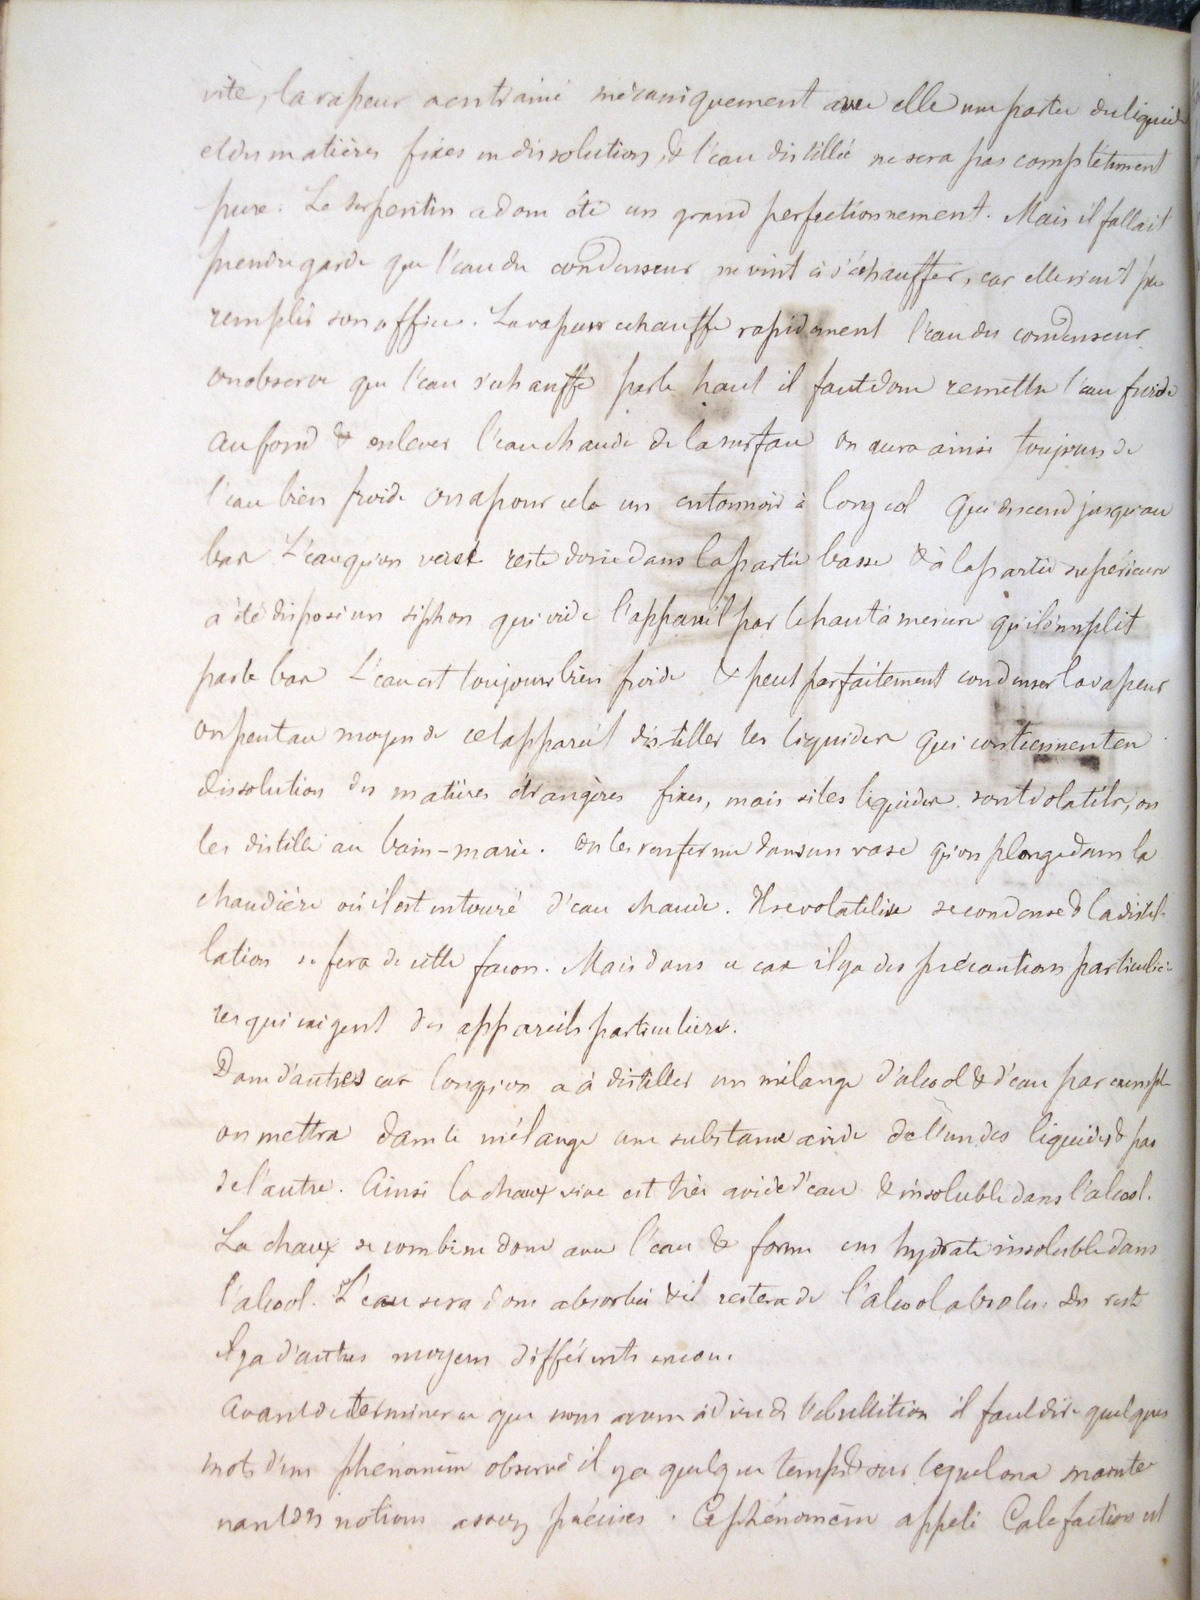 vite, la vapeur a entrainé mécaniquement avec elle une partie du liquide
et des matières fixes en dissolution, & l'eau distillée ne sera pas complètement
pure. Le serpentin a donc été un grand perfectionnement. Mais il fallait
prendre garde que l'eau du condenseur ne vint à s'échauffer, car elle n'eut pu
remplir son office. La vapeur echauffe rapidement l'eau du condenseur
on observe que l'eau s'echauffe par le haut il faut donc remettre l'eau froide
au fond & enlever l'eau chaude de la surface on aura ainsi toujours de
l'eau bien froide on a pour cela un entonnoir à long col qui descend jusqu'au
bas L'eau qu'on verse reste donc dans la partie basse & à la partie supérieure
a été disposé un siphon qui vide l'appareil par le haut à mesure qu'il s'emplit
par le bas L'eau est toujours bien froide & peut parfaitement condenser la vapeur
on peut au moyen de cet appareil distiller les liquides qui contiennent en
dissolution des matières étrangères fixes, mais si les liquides sont volatils, on
les distille au bain-marie. On les renferme dans un vase qu'on plonge dans la
chaudière où il est entouré d'eau chaude. Il se volatilise se condense & la distil-
lation se fera de cette façon. Mais dans ce cas il y a des précautions particuliè-
res qui exigent des appareils particuliers.
Dans d'autres cas lorsqu'on a à distiller un mélange d'alcool & d'eau par exempl
on mettra dans le mélange une substance avide de l'un des liquides & pas
de l'autre. Ainsi la chaux vive est très avide d'eau & insoluble dans l'alcool.
La chaux se combine donc avec l'eau & forme un hydrate insoluble dans
l'alcool. L'eau sera donc absorbée & il restera de l'alcool absolu. Du reste
il y a d'autres moyens différents encore.
Avant de terminer ce que nous avons à dire de l'ebullition il faut dire quelques
mots d'un phénomène observé il y a quelque temps & sur lequel on a mainte
nant des notions assez précises. Ce phénomène appelé Calefaction est